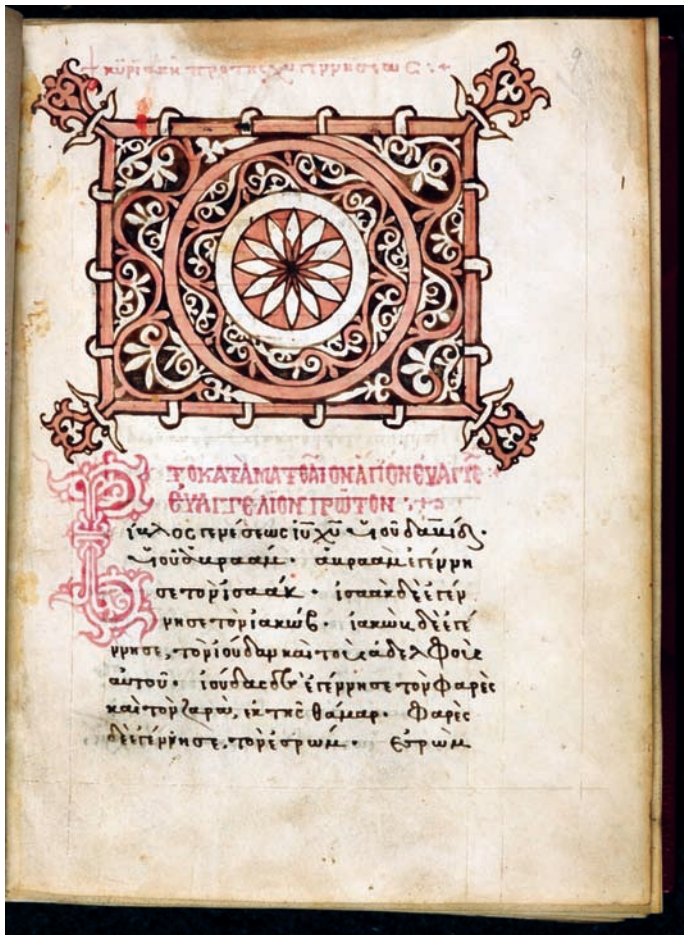 + κυριακη προ της χυ γεννησεως :+
9
+ ΤΟ ΚΑΤΑ ΜΑΤΘΑΙΟΝ ΑΓΙΟΝ ΕΥΑΓΓΕ
ΕΥΑΓΓΕΛΙΟΝ ΠΡΩΤΟΝ
Βίβλος γενέσεως ιυ χυ υιου δαυιδ·
υιου αβραάμ· αβραὰμ εγέννη
σε τον ισαάκ· ισαακ δὲ εγέν
νησε τον ιακώβ· ιακὼβ δὲ εγέ
ννησε, τον ιούδαν και τους αδελφους
αυτού· ιούδας δε εγέννησε τον Φαρὲς
και τον ζαρὰ, εκ της θάμαρ· Φαρὲς
δὲ εγέννησε, τον εσρώμ· εσρὼμ